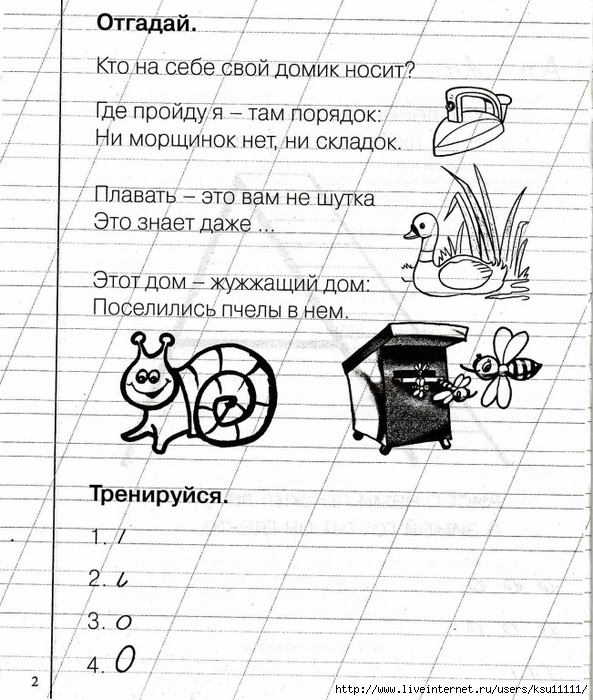 Отгадай.
Кто на себе свой домик носит?
Где пройду я – там порядок:
Ни морщинок нет, ни складок.
Плавать – это вам не шутка
Это знает даже ...
Этот дом – жужжащий дом:
Поселились пчелы в нем.
Тренируйся.
1.
2.
3. о
4. О
2
http://www.liveinternet.ru/users/ksu11111/